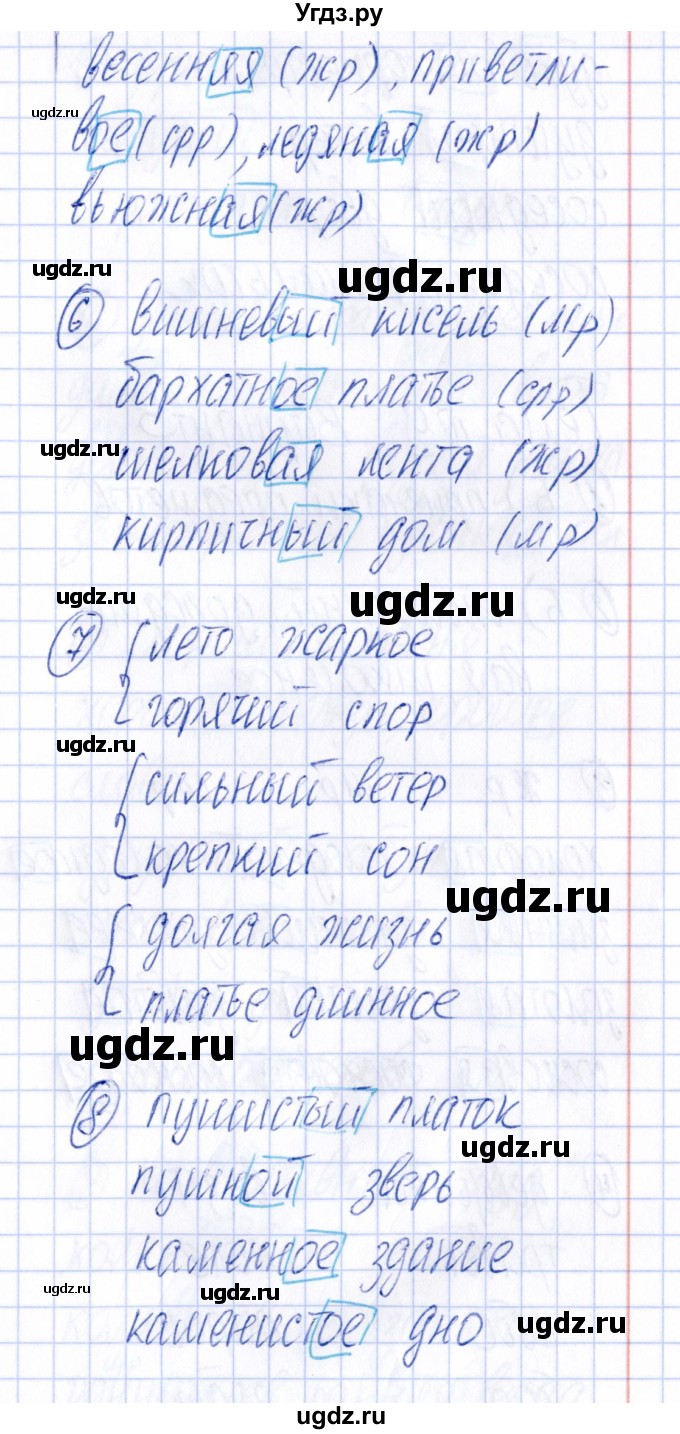 Угдз.ру
весенняя (жр), приветли-
ugdz.ru
вое (срр), ледяная (жр)
вьюжная (жр)
ugdz.ru
ugdz.ru
6 вишневый кисель (мр)
бархатное платье (срр)
ugdz.ru
шелковая лента (жр)
кирпичный дом (мр)
ugdz.ru
ugdz.ru
7 лето жаркое
горячий спор
ugdz.ru
сильный ветер
крепкий сон
ugdz.ru
долгая жизнь
платье длинное
ugdz.ru
8 пушистый платок
ugdz.ru
пушной зверь
каменное здание
ugdz.ru
ugdz.ru
каменистое дно
ugdz.ru
ugdz.ru